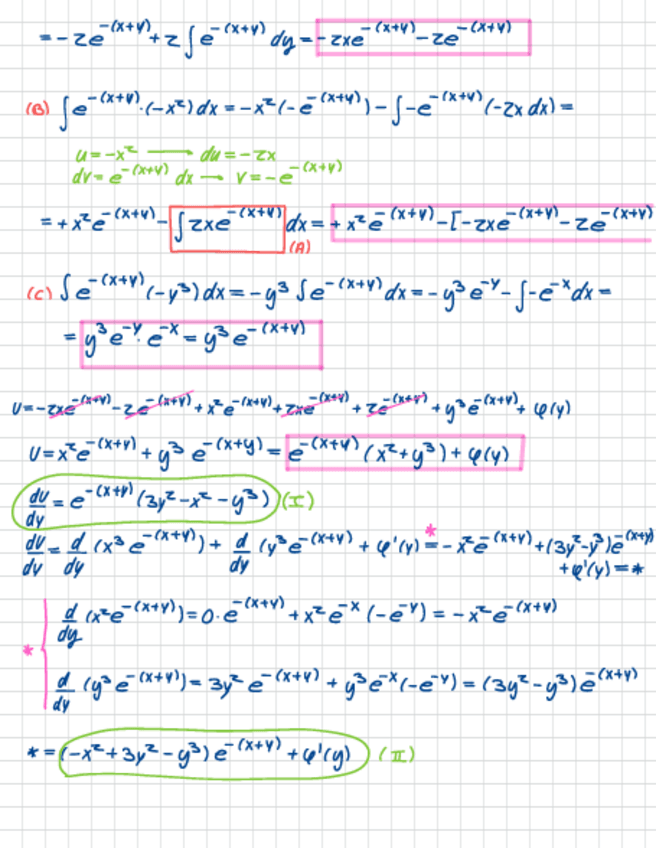 = -2e^-(x+y) + 2 ∫ e^-(x+y) dy = -2xe^-(x+y) - 2e^-(x+y)
(B) ∫ e^-(x+y) · (-x²) dx = -x² (-e^-(x+y)) - ∫ -e^-(x+y) (-2x dx) =
u = -x² → du = -2x
dv = e^-(x+y) dx → v = -e^-(x+y)
= + x² e^-(x+y) - ∫ 2xe^-(x+y) dx = + x² e^-(x+y) - [-2xe^-(x+y) - 2e^-(x+y)
(A)
(C) ∫ e^-(x+y) (-y³) dx = -y³ ∫ e^-(x+y) dx = -y³ e^-y - ∫ -e^-x dx =
= y³ e^-y · e^-x = y³ e^-(x+y)
U = -2xe^-(x+y) - 2e^-(x+y) + x² e^-(x+y) + 2xe^-(x+y) + 2e^-(x+y) + y³ e^-(x+y) + φ(y)
U = x² e^-(x+y) + y³ e^-(x+y) = e^-(x+y) (x² + y³) + φ(y)
du/dy = e^-(x+y) (3y² - x² - y³) (I)
du/dv = d/dy (x³ e^-(x+y)) + d/dy (y³ e^-(x+y) + φ'(y) =* -x² e^-(x+y) + (3y² - y³) e^-(x+y)
+ φ'(y) = *
d/dy (x² e^-(x+y)) = 0 · e^-(x+y) + x² e^-x (-e^-y) = -x² e^-(x+y)
*
d/dy (y³ e^-(x+y)) = 3y² e^-(x+y) + y³ e^-x (-e^-y) = (3y² - y³) e^-(x+y)
* = (-x² + 3y² - y³) e^-(x+y) + φ'(y) (II)